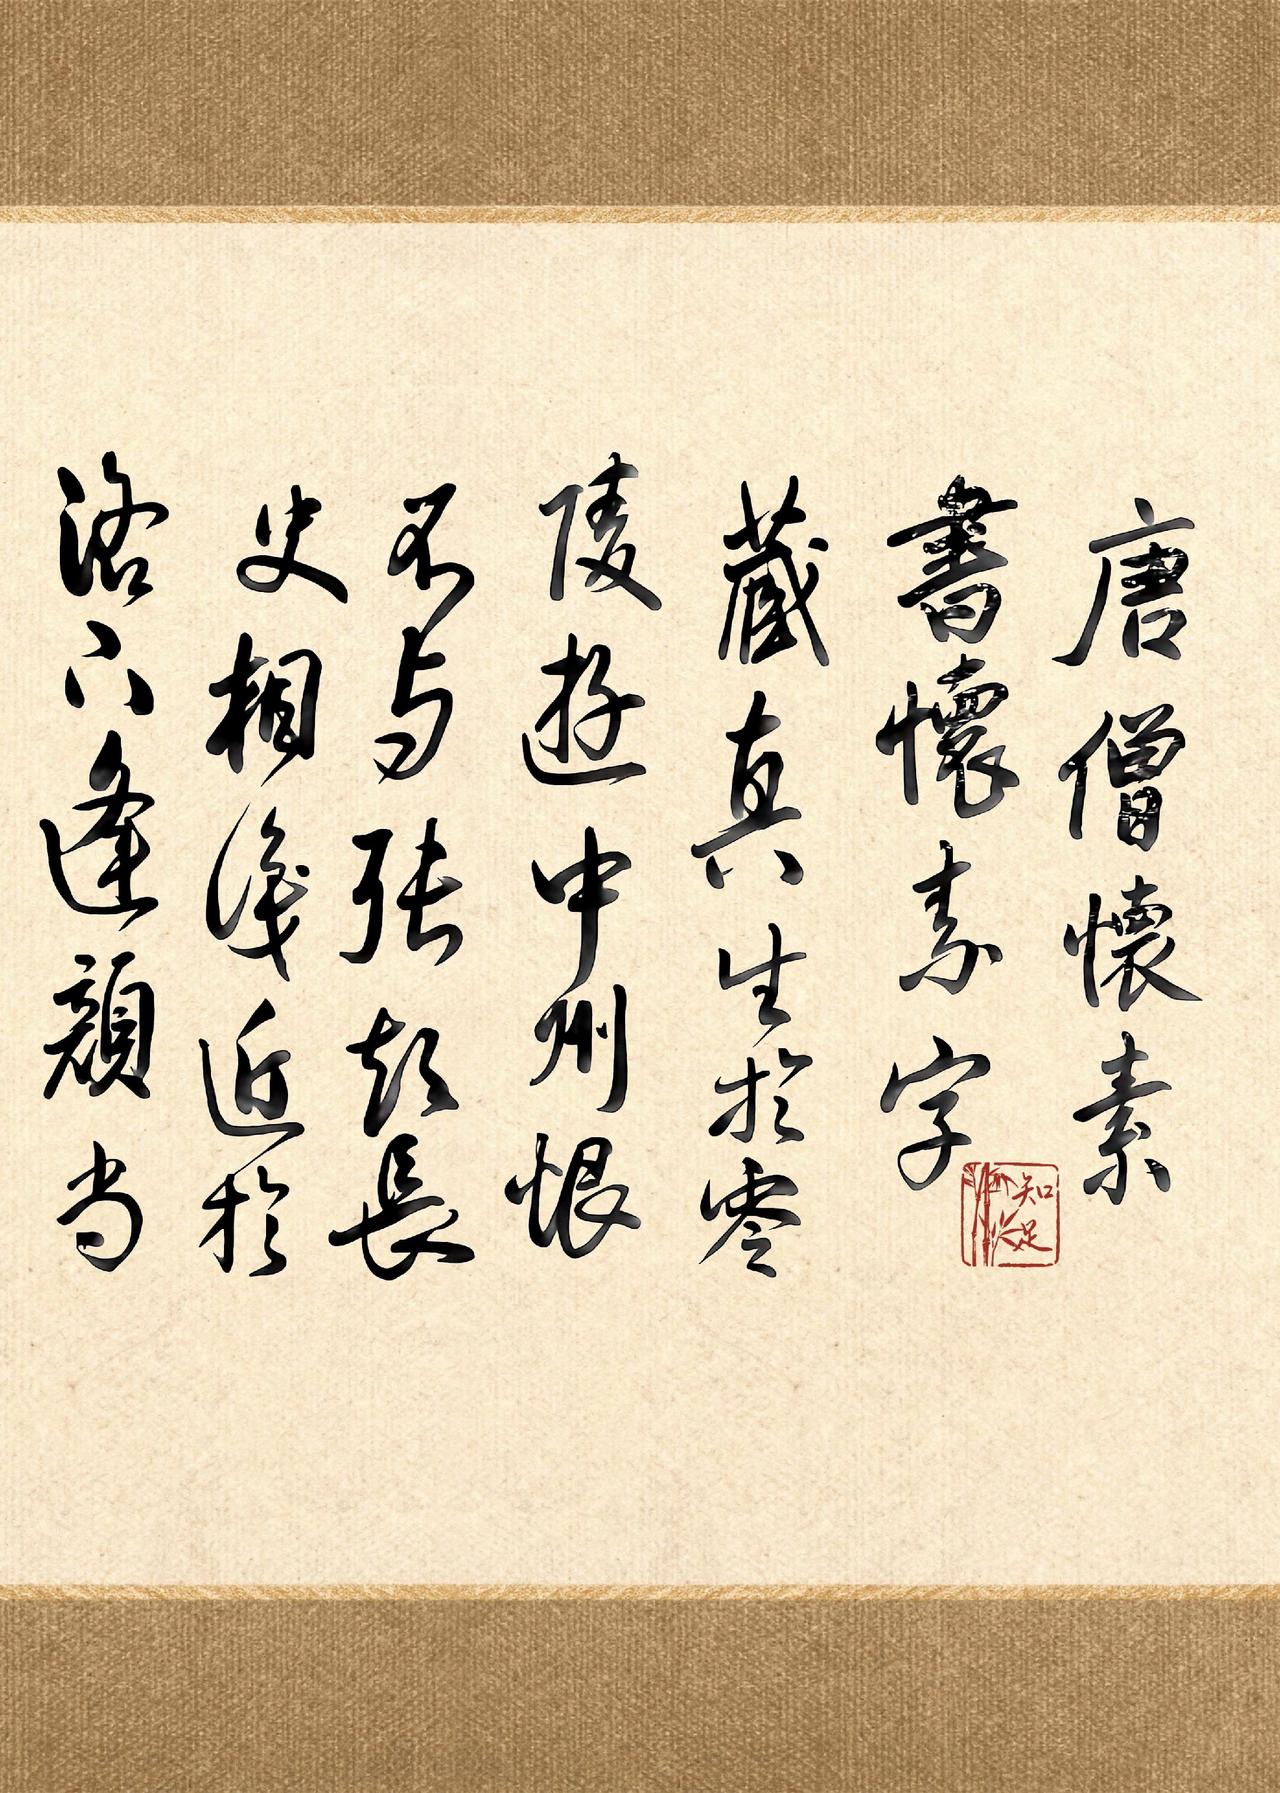 唐僧懷素
書懷素字
藏真生於零
陵遊中州恨
不与張顛長
史相識近於
洛下逢顏尚
知足